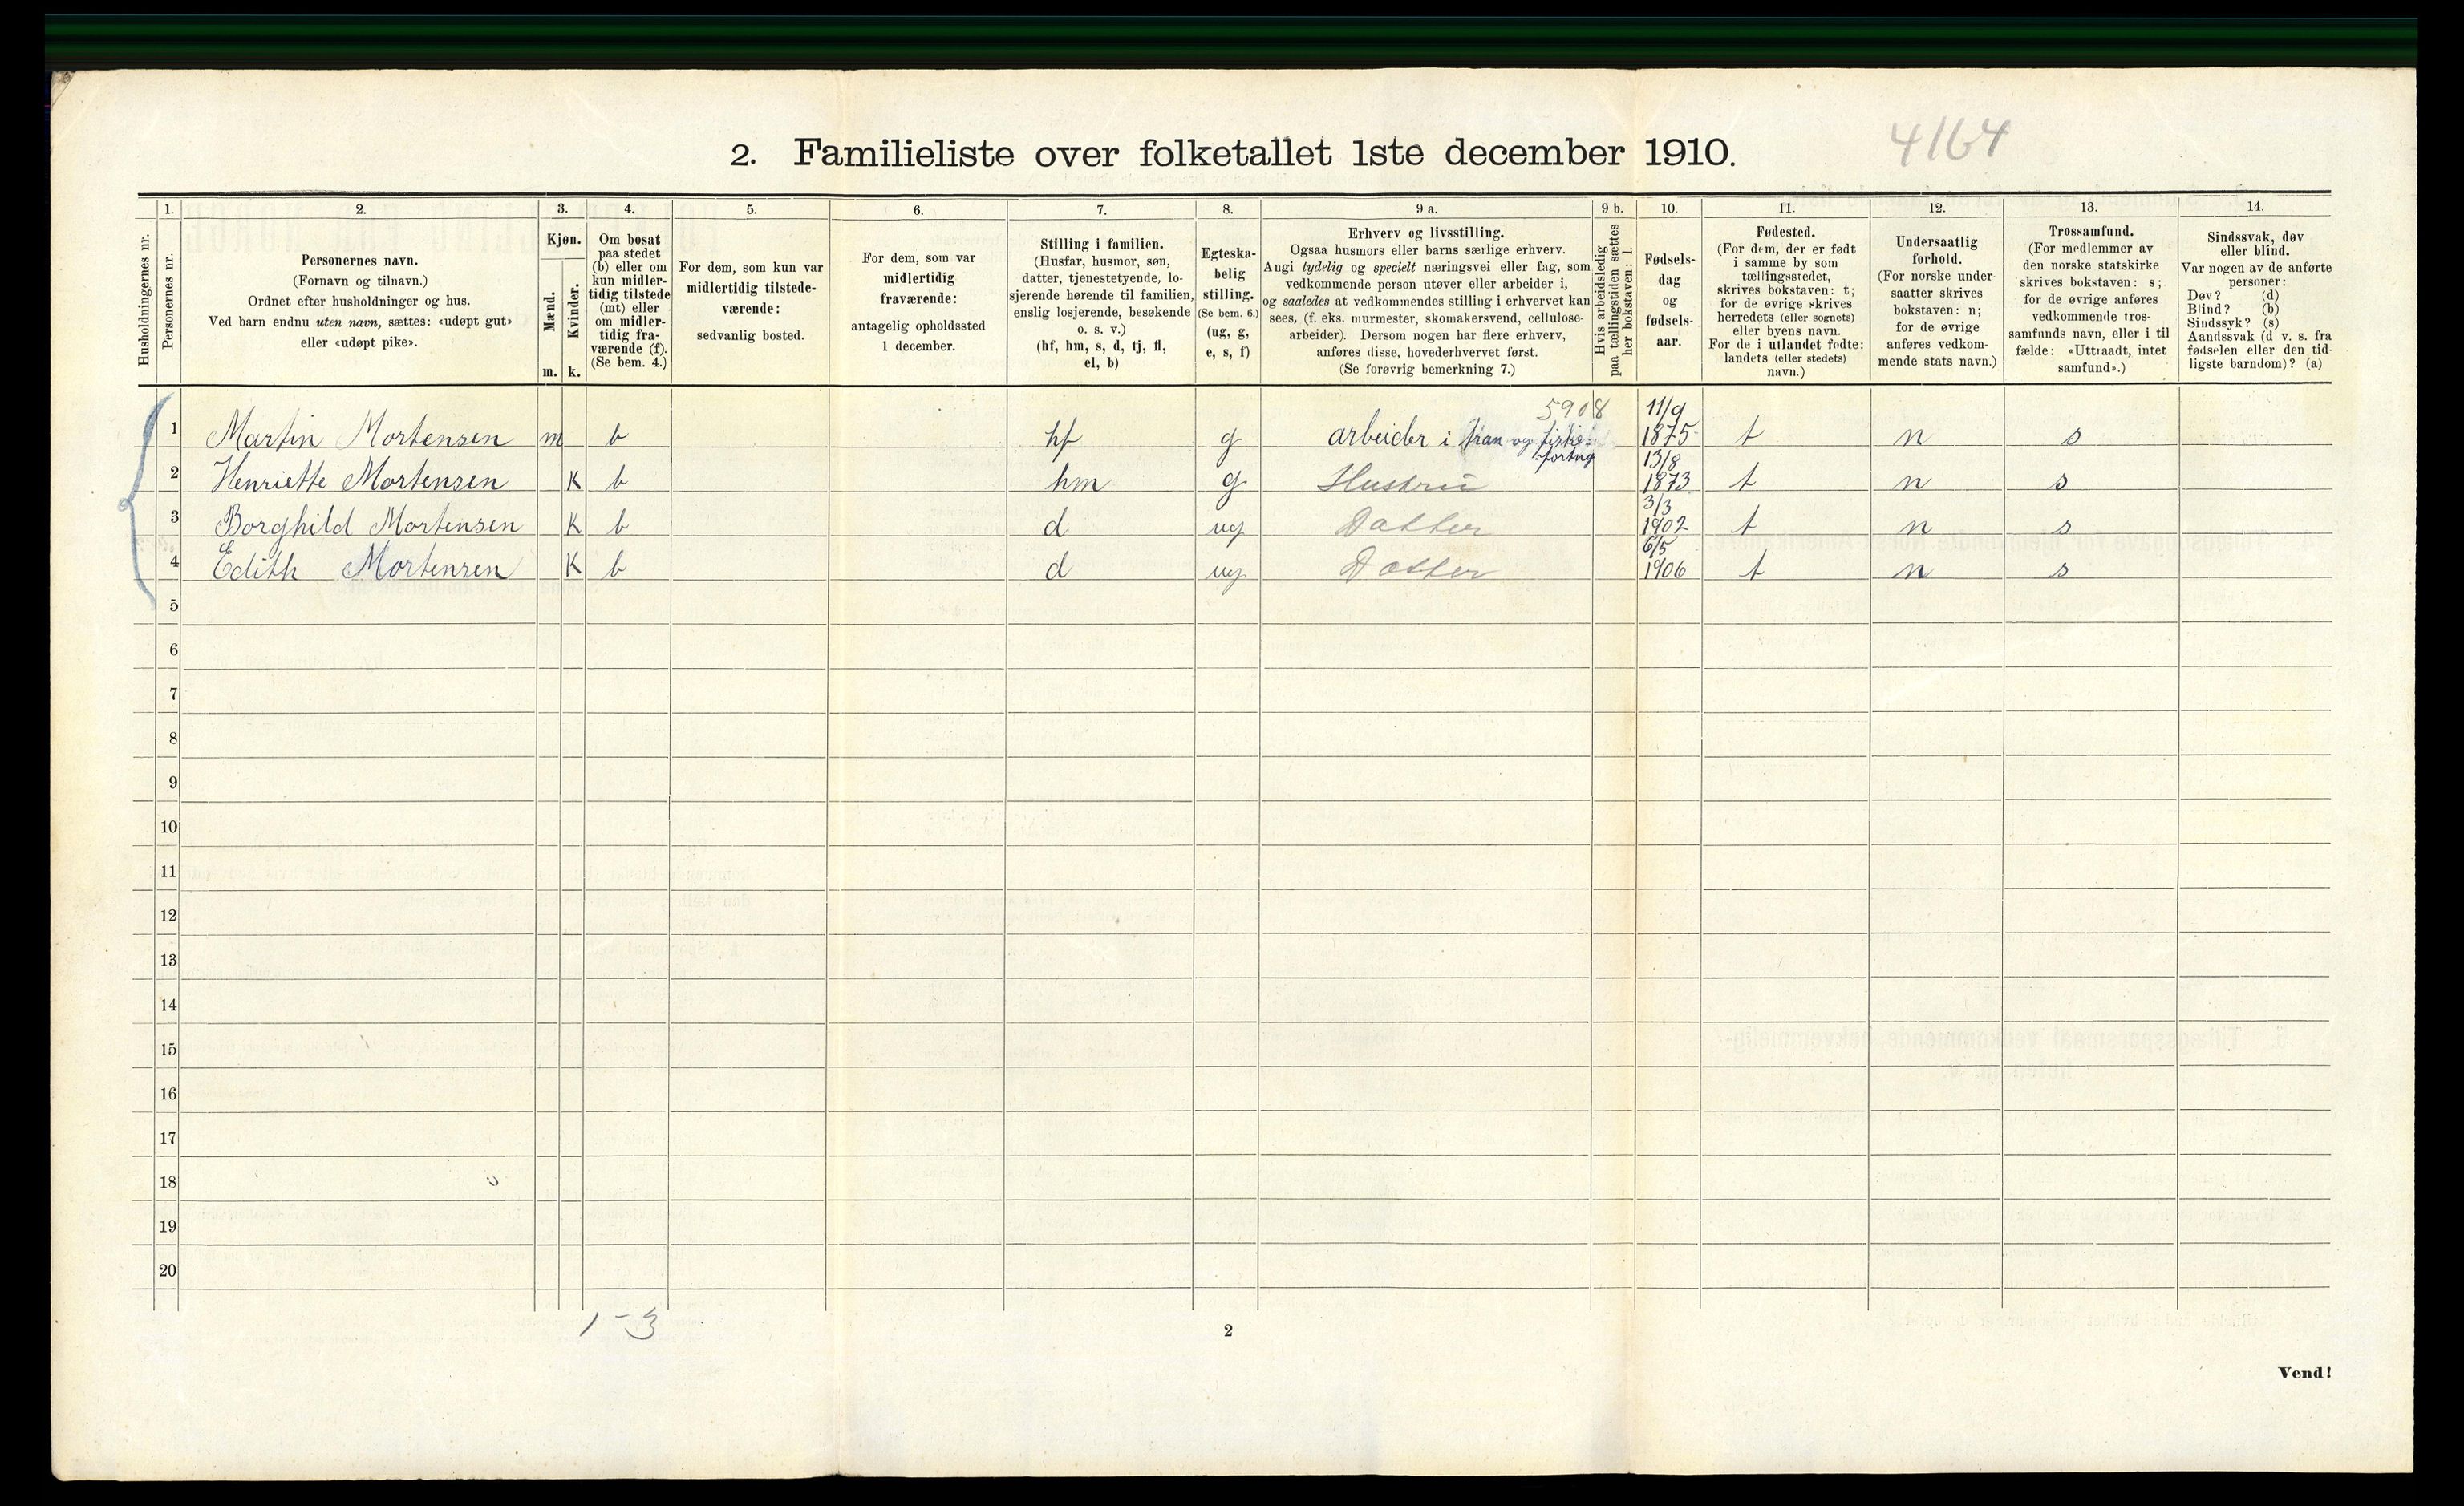 2. Familieliste over folketallet 1ste december 1910.
4164
1. 2. 3. 4. 5. 6. 7. 8. 9 a. 9 b. 10. 11. 12. 13. 14.
Husholdningernes nr.
Personernes nr.
Personernes navn.
(Fornavn og tilnavn.)
Ordnet efter husholdninger og hus.
Ved barn endnu uten navn, sættes: «udøpt gut»
eller «udøpt pike».
Kjøn.
Mænd.
Kvinder.
m. k.
Om bosat
paa stedet
(b) eller om
kun midler-
tidig tilstede
(mt) eller
om midler-
tidig fra-
værende (f).
(Se bem. 4.)
For dem, som kun var
midlertidig tilstede-
værende:
sedvanlig bosted.
For dem, som var
midlertidig
fraværende:
antagelig opholdssted
1 december.
Stilling i familien.
(Husfar, husmor, søn,
datter, tjenestetyende, lo-
sjerende hørende til familien,
enslig losjerende, besøkende
o. s. v.)
(hf, hm, s, d, tj, fl,
el, b)
Egteska-
belig
stilling.
(Se bem. 6.)
(ug, g,
e, s, f)
Erhverv og livsstilling.
Ogsaa husmors eller barns særlige erhverv.
Angi tydelig og specielt næringsvei eller fag, som
vedkommende person utøver eller arbeider i,
og saaledes at vedkommendes stilling i erhvervet kan
sees, (f. eks. murmester, skomakersvend, cellulose-
arbeider). Dersom nogen har flere erhverv,
anføres disse, hovederhvervet først.
(Se forøvrig bemerkning 7.)
Hvis arbeidsledig
paa tællingstiden sættes
her bokstaven: l.
Fødsels-
dag
og
fødsels-
aar.
Fødested.
(For dem, der er født
i samme by som
tællingsstedet,
skrives bokstaven: t;
for de øvrige skrives
herredets (eller sognets)
eller byens navn.
For de i utlandet fødte:
landets (eller stedets)
navn.)
Undersaatlig
forhold.
(For norske under-
saatter skrives
bokstaven: n;
for de øvrige
anføres vedkom-
mende stats navn.)
Trossamfund.
(For medlemmer av
den norske statskirke
skrives bokstaven: s;
for de øvrige anføres
vedkommende tros-
samfunds navn, eller i til
fælde: «Uttraadt, intet
samfund».)
Sindssvak, døv
eller blind.
Var nogen av de anførte
personer:
Døv? (d)
Blind? (b)
Sindssyk? (s)
Aandssvak (d. v. s. fra
fødselen eller den tid-
ligste barndom)? (a)
5908 11/9
1 Martin Mortensen m b hf g arbeider i tran og fiske- 1875 t n s
13/8
2 Henriette Mortensen K b hm g Hustru 1873 t n s
3/3
3 Borghild Mortensen K b d ug Datter 1902 t n s
6/5
4 Edith Mortensen K b d ug Datter 1906 t n s
5
6
7
8
9
10
11
12
13
14
15
16
17
18
19
20
1-3
2
Vend!